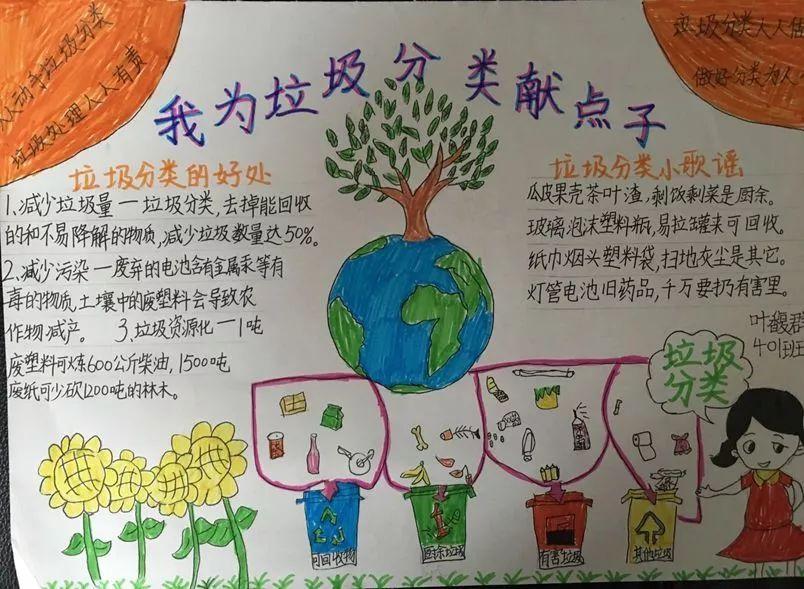 人人动手垃圾分类
垃圾处理人人有责
垃圾分类人人做
做好分类为人
我为垃圾分类献点子
垃圾分类的好处
1、减少垃圾量一垃圾分类,去掉能回收
的和不易降解的物质,减少垃圾数量达50%。
2、减少污染一废弃的电池含有金属汞等有
毒的物质,土壤中的废塑料会导致农
作物减产。 3、垃圾资源化一1吨
废塑料可炼600公斤柴油,1500吨
废纸可少砍1200吨的林木。
垃圾分类小歌谣
瓜皮果壳茶叶渣,剩饭剩菜是厨余。
玻璃泡沫塑料瓶,易拉罐来可回收。
纸巾烟头塑料袋,扫地灰尘是其它。
灯管电池旧药品,千万要扔有害里。
叶馥群
401班
垃圾
分类
可回收物
厨余垃圾
有害垃圾
其他垃圾